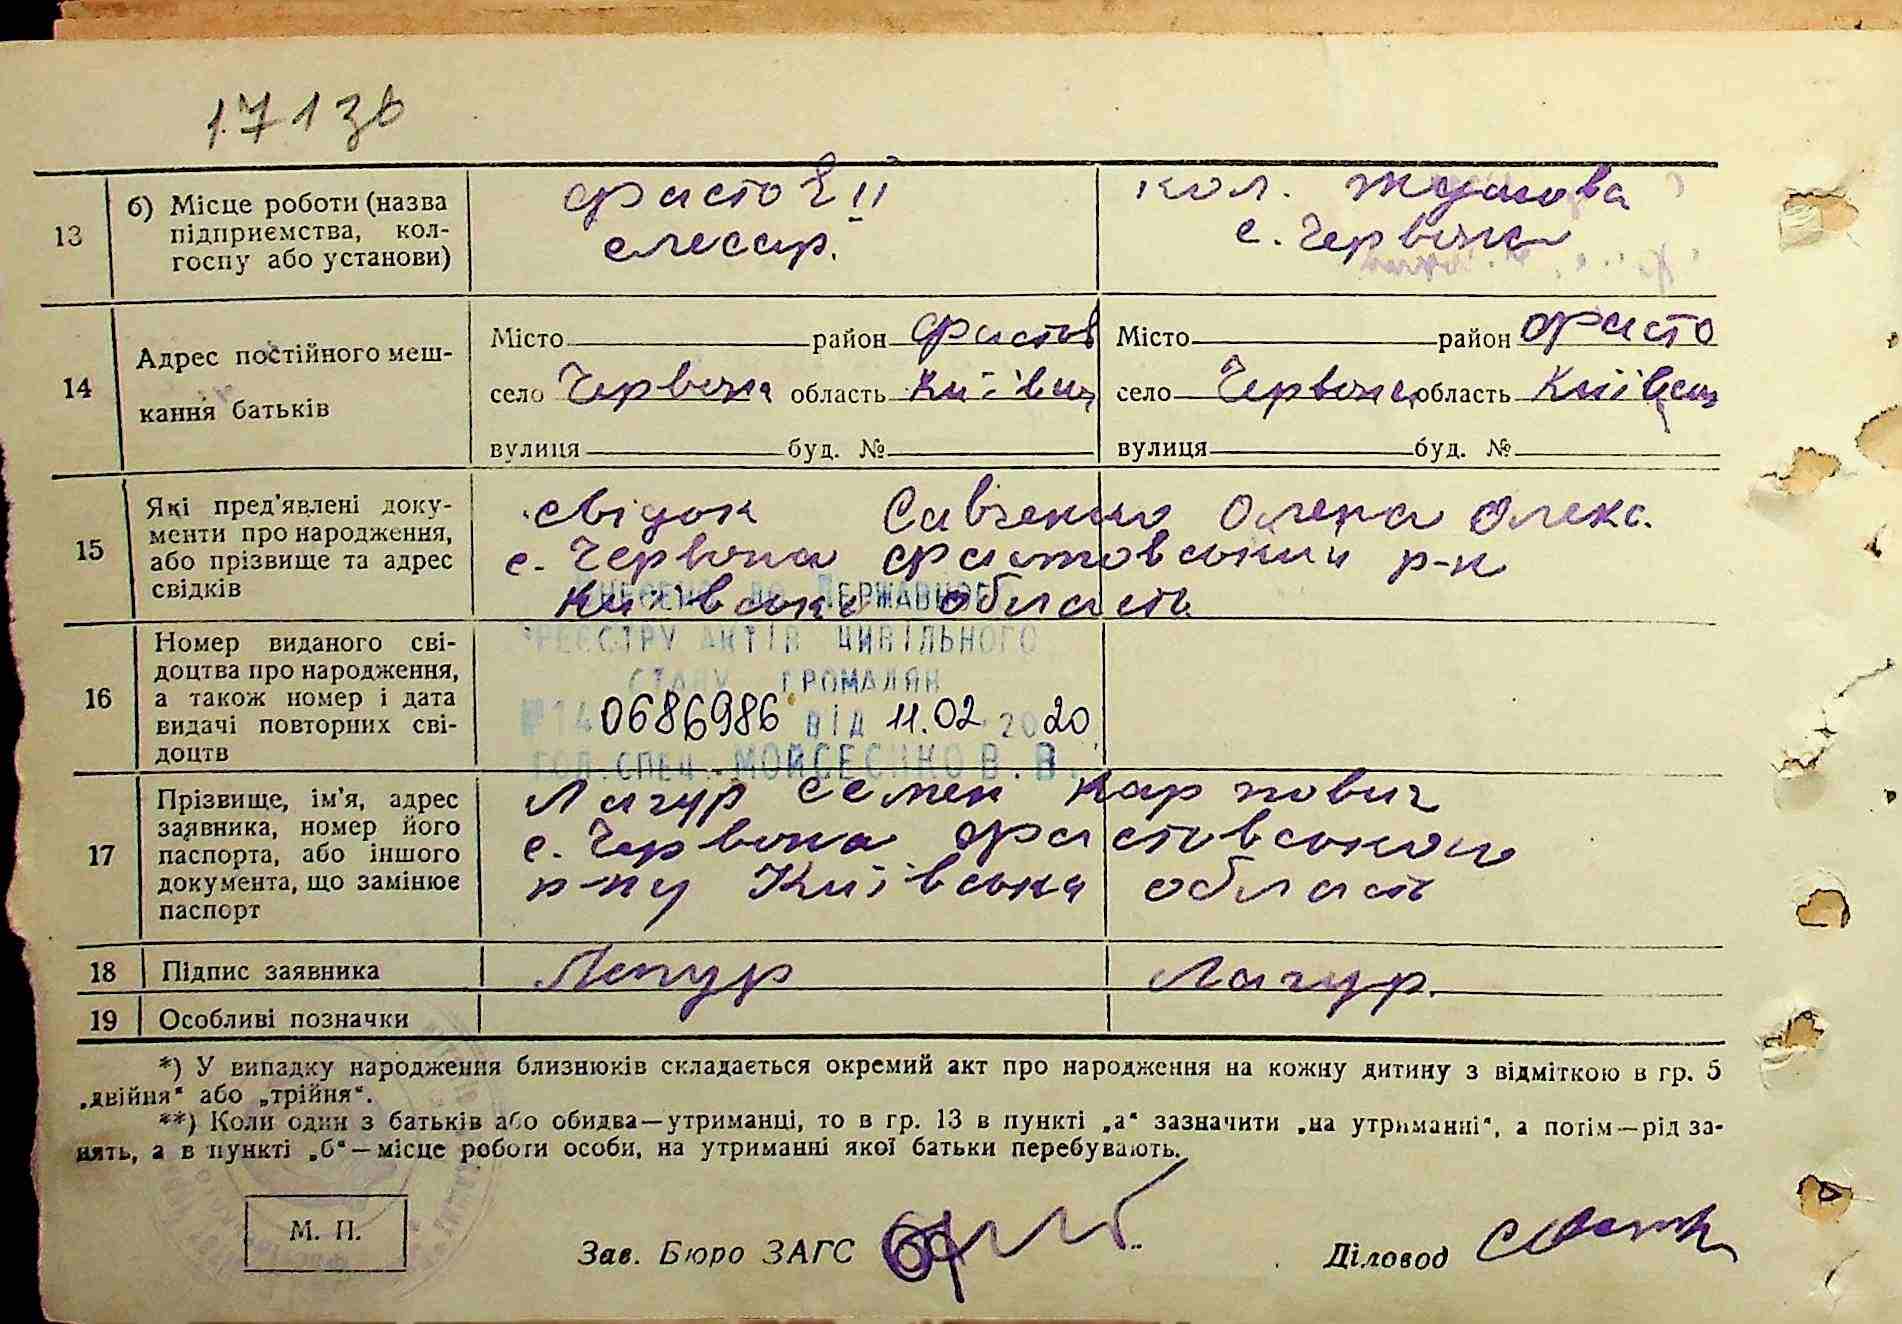 17136
13
б) Місце роботи (назва
підприємства, кол-
госпу або установи)
Фастов II
слесар.
кол. Жданова
с. Червона
14
Адрес постійного меш-
кання батьків
Місто район Фастов
село Червона область Київськ
вулиця буд. №
Місто район Фасто
село Червона область Київськ
вулиця буд. №
15
Які пред'явлені доку-
менти про народження,
або прізвище та адрес
свідків
свідок Савченко Олена Олекс.
с. Червона Фастовський р-н
Київська область
16
Номер виданого сві-
доцтва про народження,
а також номер і дата
видачі повторних сві-
доцтв
ВНЕСЕНО ДО ДЕРЖАВНОГО
РЕЄСТРУ АКТІВ ЦИВІЛЬНОГО
СТАНУ ГРОМАДЯН
№ 140686986 ВІД 11.02 2020
ГОЛ.СПЕЦ. В.
17
Прізвище, ім'я, адрес
заявника, номер його
паспорта, або іншого
документа, що замінює
паспорт
Лагур Семен Карпович
с. Червона Фастовського
р-ну Київська область
18
Підпис заявника
Лагур
Лагур.
19
Особливі позначки
*) У випадку народження близнюків складається окремий акт про народження на кожну дитину з відміткою в гр. 5
„двійня“ або „трійня“.
**) Коли один з батьків або обидва—утриманці, то в гр. 13 в пункті „а“ зазначити „на утриманні“, а потім—рід за-
нять, а в пункті „б“—місце роботи особи, на утриманні якої батьки перебувають.
М. П.
Зав. Бюро ЗАГС
Діловод